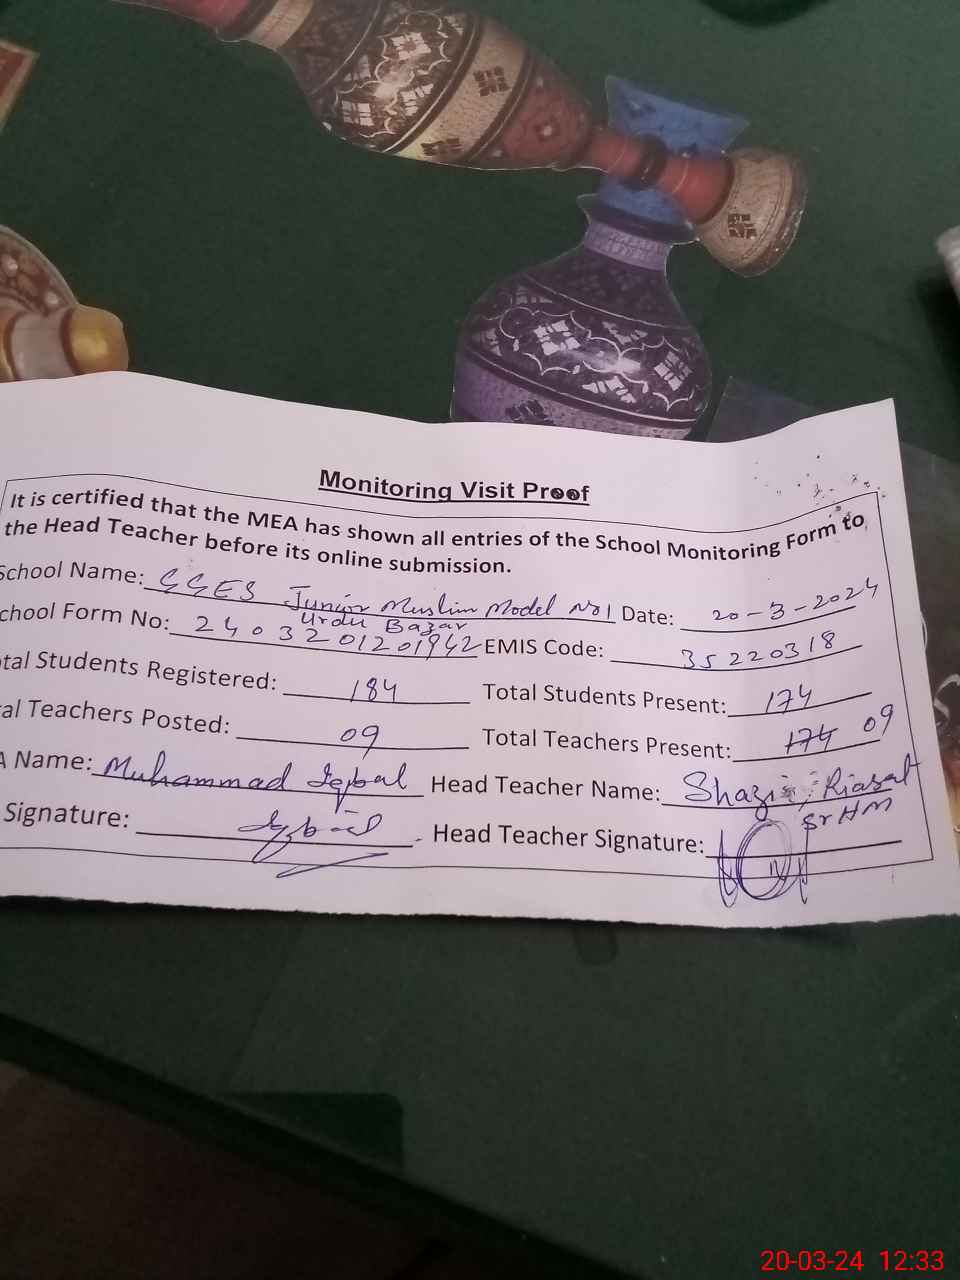 Monitoring Visit Proof
It is certified that the MEA has shown all entries of the School Monitoring Form to
the Head Teacher before its online submission.
School Name: GGES Junior Muslim Model No1 Date: 20-3-2024
Urdu Bazar
chool Form No: 2403201201942 EMIS Code: 35220318
tal Students Registered: 184 Total Students Present: 174
al Teachers Posted: 09 Total Teachers Present: 174 09
A Name: Muhammad Iqbal Head Teacher Name: Shazia Riasat
Sr HM
Signature: Iqbal Head Teacher Signature:
20-03-24 12:33